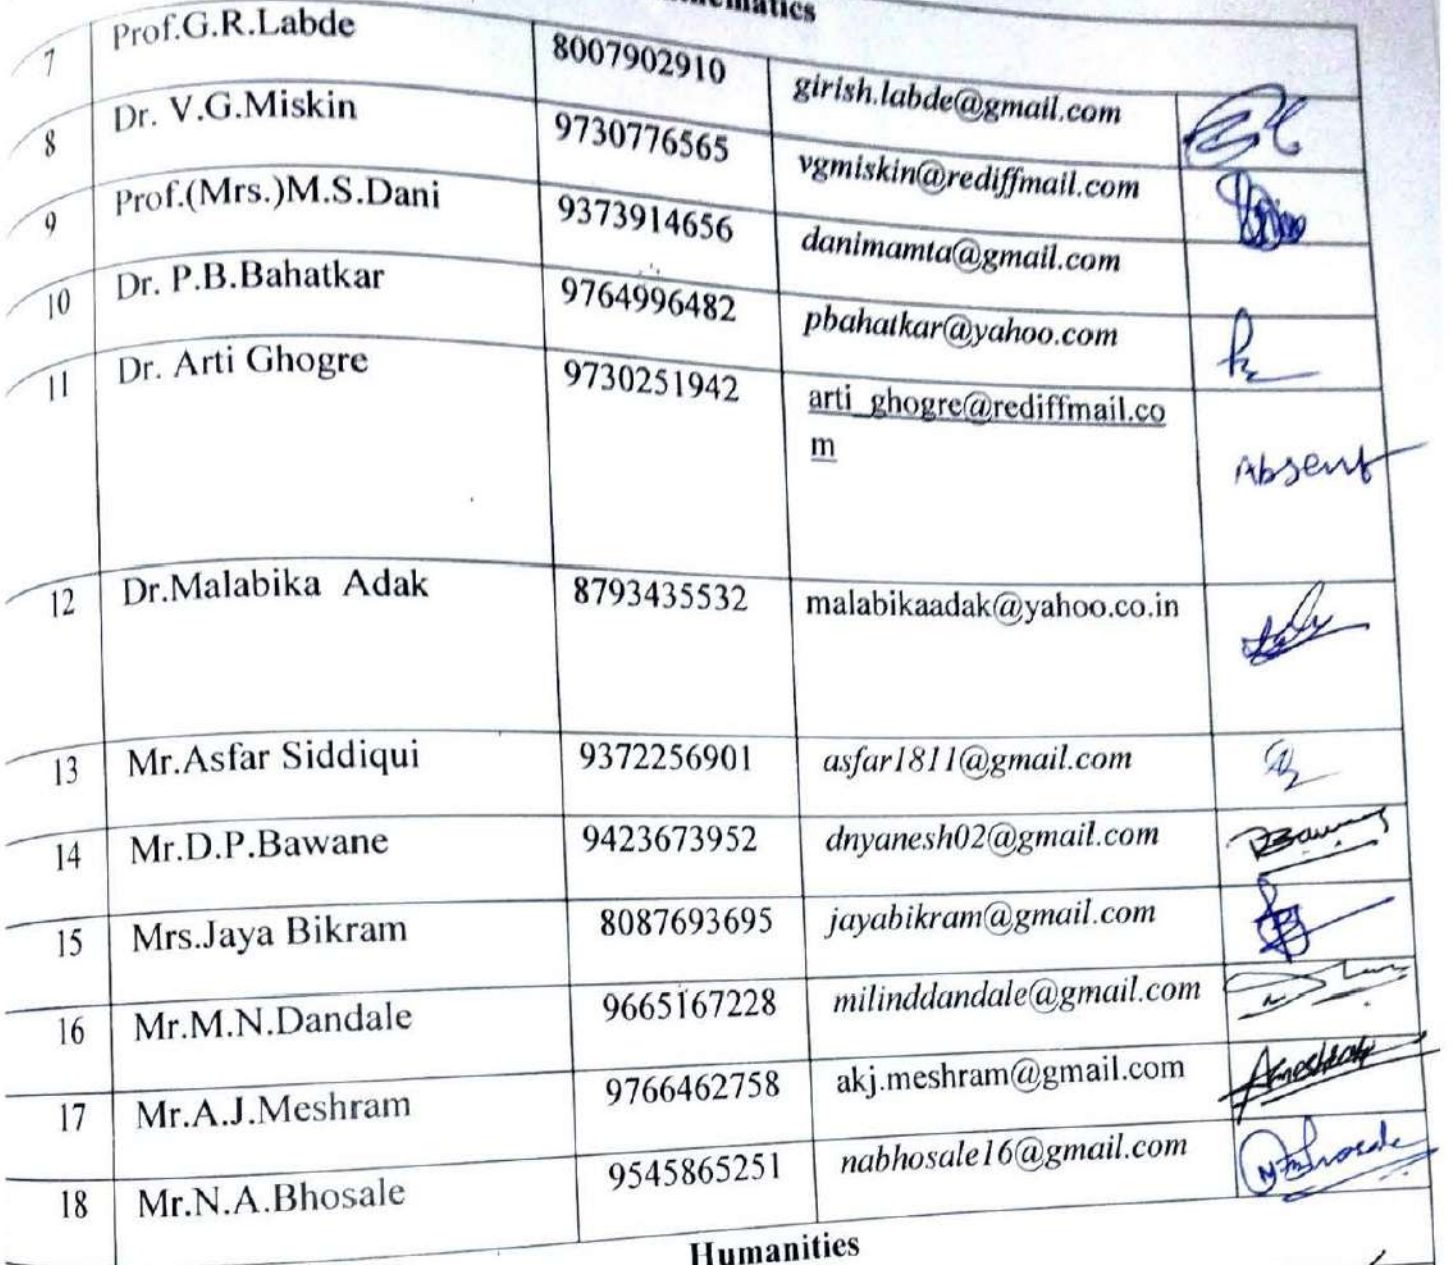 7 Prof.G.R.Labde 8007902910 girish.labde@gmail.com
8 Dr. V.G.Miskin 9730776565 vgmiskin@rediffmail.com
9 Prof.(Mrs.)M.S.Dani 9373914656 danimamta@gmail.com
10 Dr. P.B.Bahatkar 9764996482 pbahatkar@yahoo.com
11 Dr. Arti Ghogre 9730251942 arti_ghogre@rediffmail.co
m
Absent
12 Dr.Malabika Adak 8793435532 malabikaadak@yahoo.co.in
13 Mr.Asfar Siddiqui 9372256901 asfar1811@gmail.com
14 Mr.D.P.Bawane 9423673952 dnyanesh02@gmail.com
15 Mrs.Jaya Bikram 8087693695 jayabikram@gmail.com
16 Mr.M.N.Dandale 9665167228 milinddandale@gmail.com
17 Mr.A.J.Meshram 9766462758 akj.meshram@gmail.com
18 Mr.N.A.Bhosale 9545865251 nabhosale16@gmail.com
Humanities